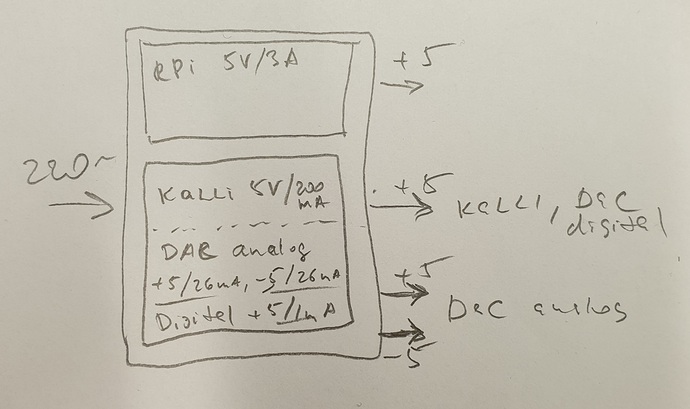 RPi 5V/3A
+5
220~
Kalli 5V/200 mA
+5
Kalli, DAC digital
DAC analog
+5/26mA, -5/26mA
Digital +5/1mA
+5
DAC analog
-5